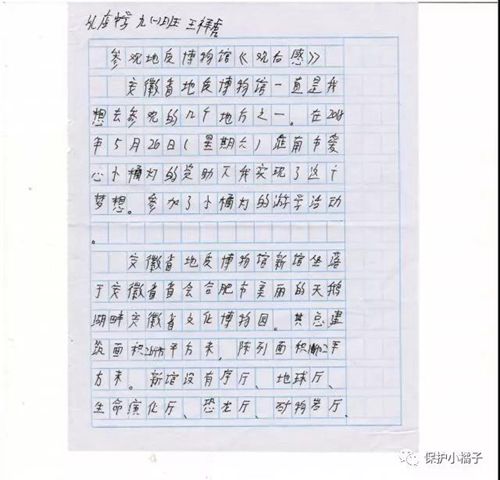 中学 九(一)班
参观地质博物馆《观后感》
安徽省地质博物馆一直是我
想去参观的几个地方之一。在2018
年5月26日(星期六)淮南市爱
心小橘灯的资助下我实现了这个
梦想。参加了小橘灯的游学活动
。
安徽省地质博物馆新馆坐落
于安徽省省会合肥市美丽的天鹅
湖畔安徽省文化博物园。其总建
筑面积平方米,陈列面积平
方米。新馆设有序厅、地球厅、
生命演化厅、恐龙厅、矿物岩厅、
保护小橘子